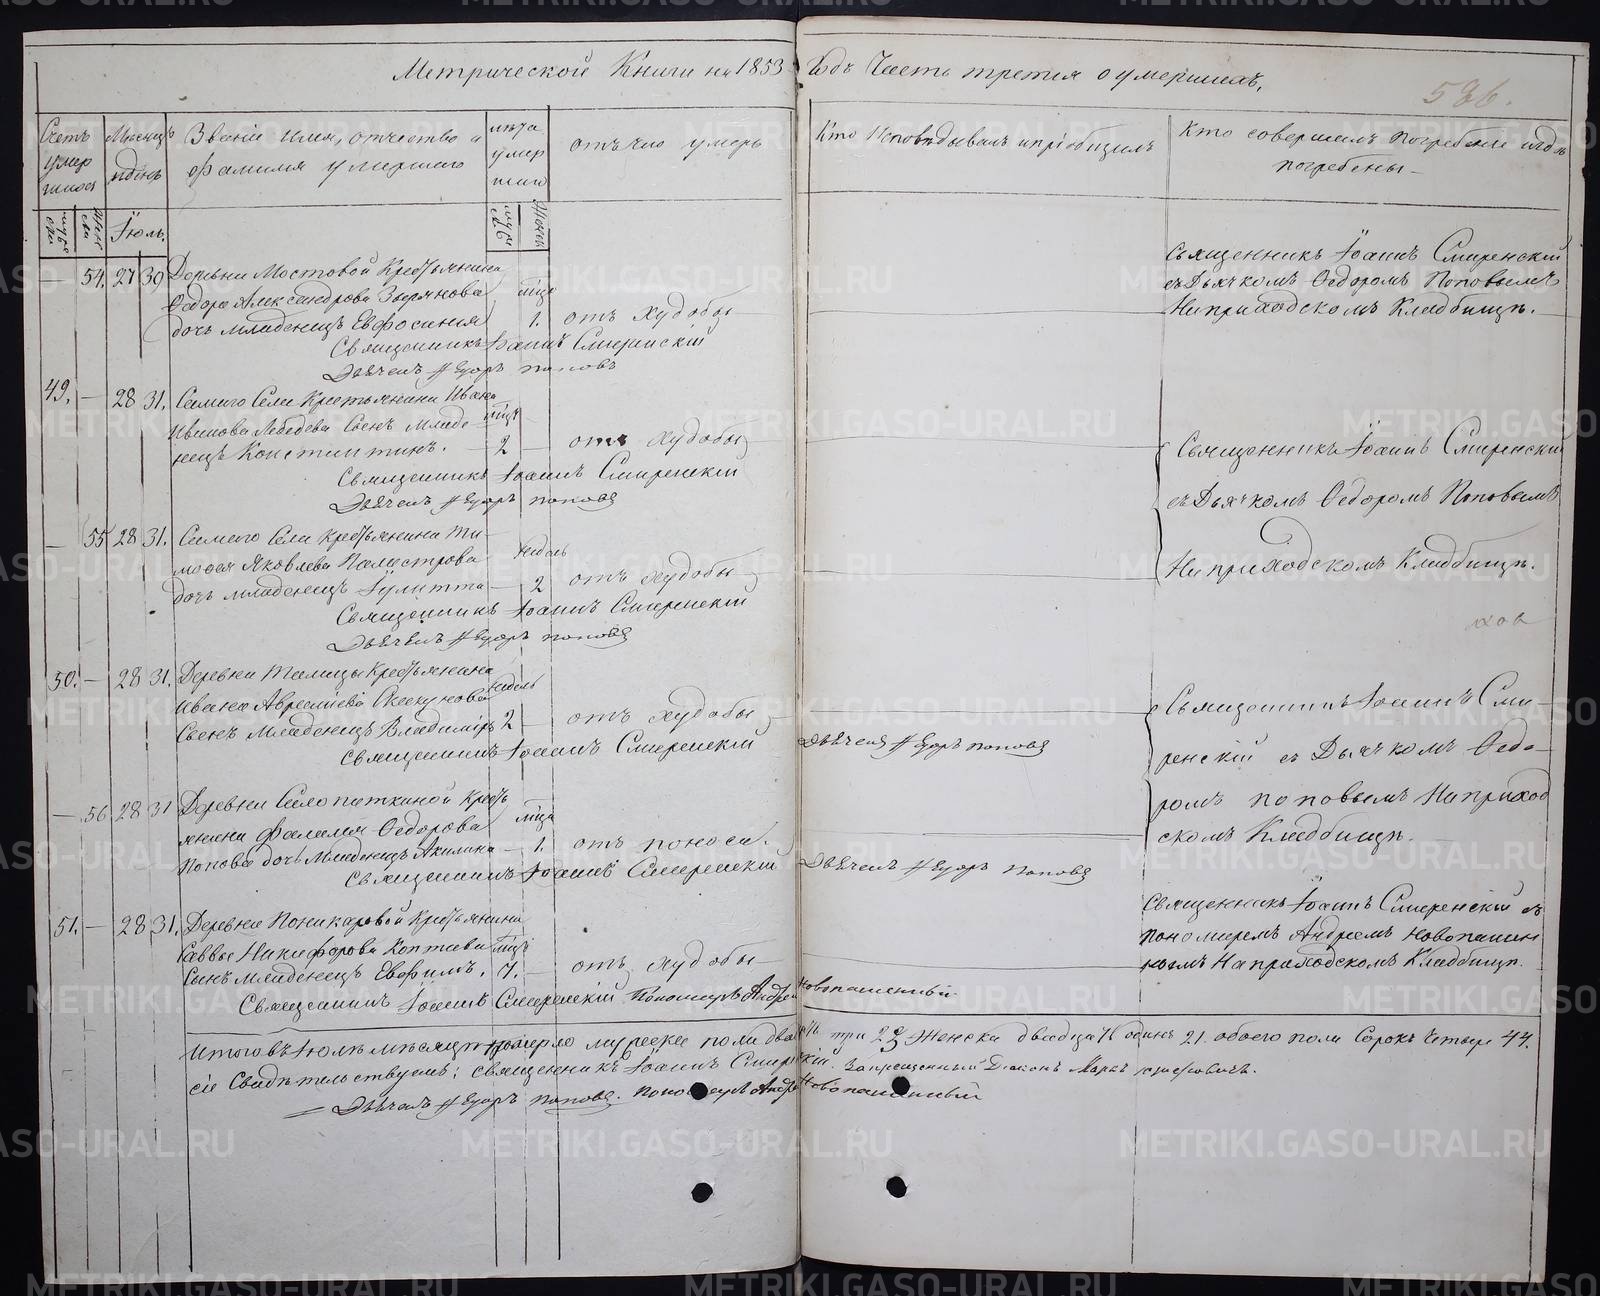 Метрической Книги на 1853 Годъ Часть третия о умершихъ.
586.
Счетъ умершихъ
Мѣсяцъ и день
Званіе имя, отчество и фамилия умершаго
лѣта умершаго
отъ чего умеръ
Кто Исповѣдывалъ и пріобщилъ
Кто совершалъ Погребеніе и гдѣ погребены
Іюль.
— 54. 27 30 Деревни Мостовой Крестьянина
Ѳедора Александрова Зырянова мѣся
дочь младенецъ Евфросинія 1. отъ худобы
Священникъ Іоаннъ Смиренскій
Дьячекъ Ѳедоръ поповъ
Священникъ Іоаннъ Смиренскій
съ Дьячкомъ Ѳедоромъ Поповымъ
На приходскомъ Кладбищѣ.
49. — 28 31. Самаго Села Крестьянина Ивана
Иванова Лебедева Сынъ Младе-
нецъ Константинъ. 2 — отъ худобы
Священникъ Іоаннъ Смиренскій
Дьячекъ Ѳедоръ поповъ
Священникъ Іоаннъ Смиренскій
съ Дьячкомъ Ѳедоромъ Поповымъ
На приходскомъ Кладбищѣ.
— 55 28 31. Самаго Села Крестьянина Ти-
моѳея Яковлева недѣль
дочь младенецъ Іулитта — 2 отъ худобы
Священникъ Іоаннъ Смиренскій
Дьячекъ Ѳедоръ поповъ
50. — 28 31. Деревни Талицы Крестьянина
Ивана Скакунова недѣль
Сынъ Младенецъ Владиміръ 2 — отъ худобы
Священникъ Іоаннъ Смиренскій Дьячекъ Ѳедоръ поповъ
Священникъ Іоаннъ Сми-
ренскій съ Дьячкомъ Ѳедо-
ромъ поповымъ На приход-
скомъ Кладбищѣ.
— 56 28 31 Деревни Кресть-
янина Ѳедорова
Попова дочь Младенецъ Акилина — 1. отъ поноса.
Священникъ Іоаннъ Смиренскій Дьячекъ Ѳедоръ поповъ
51. — 28 31. Деревни Поникаровой Крестьянина
Саввы Никифорова Коптяева
Сынъ младенецъ Евфимъ. 7. — отъ худобы
Священникъ Іоаннъ Смиренскій Пономарь Андрей Новопашенный
Священникъ Іоаннъ Смиренскій съ
пономаремъ Андреемъ Новопашен-
нымъ На приходскомъ Кладбищѣ.
Итого въ Іюлѣ мѣсяцѣ померло мужеска пола двадцать три 23 Женска двадцать одинъ 21. обоего пола Сорокъ четыре 44.
сіе Свидѣтельствуемъ: священникъ Іоаннъ Смиренскій. Запрещенный Діаконъ Маркъ
Дьячекъ Ѳедоръ поповъ. Пономарь Андрей Новопашенный
METRIKI.GASO-URAL.RU